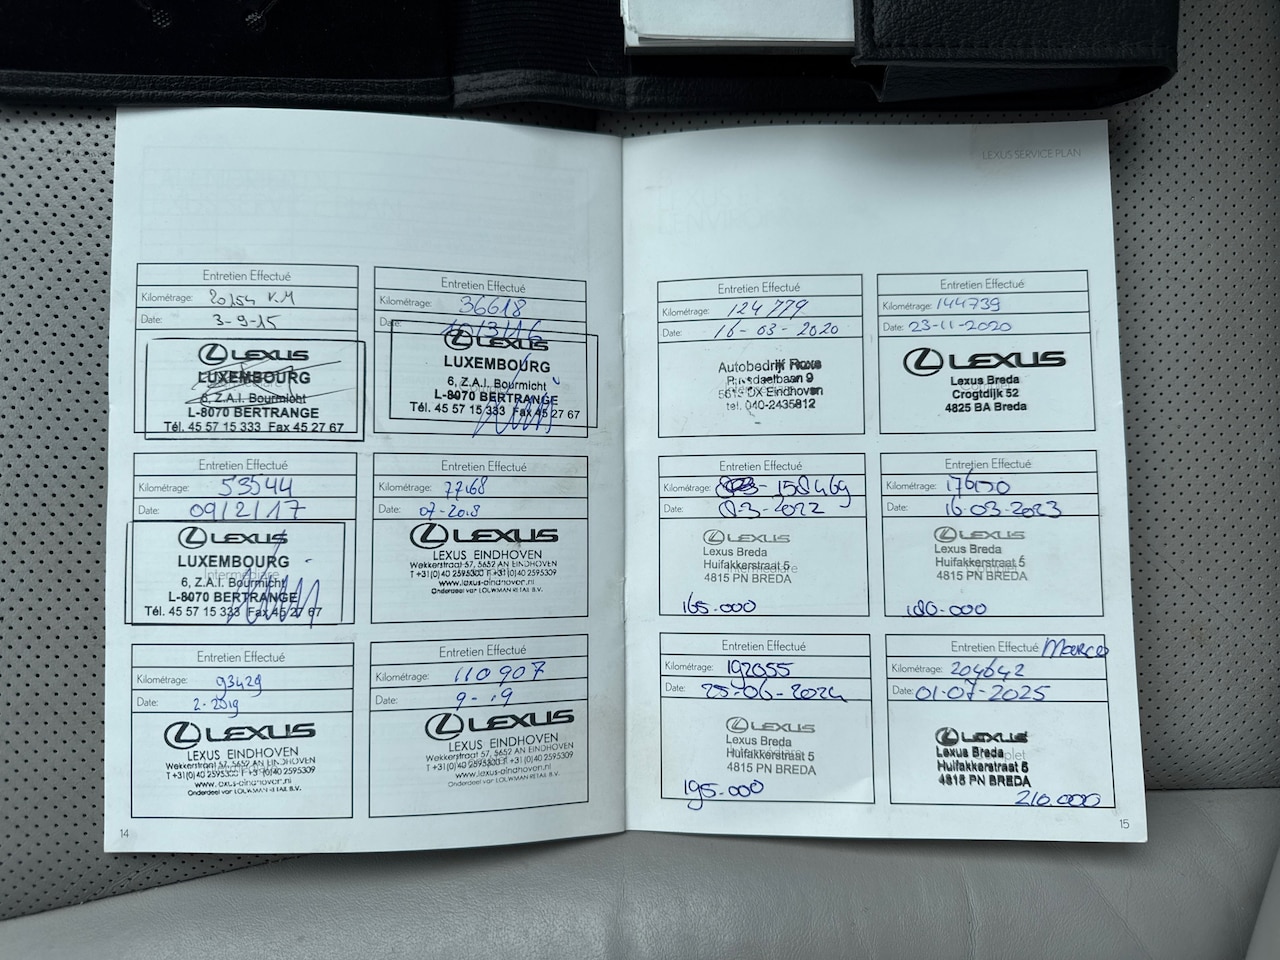 LEXUS SERVICE PLAN
Entretien Effectué
Kilométrage: 20154 KM
Date: 3-9-15
LEXUS
LUXEMBOURG
6, Z.A.I. Bourmicht
L-8070 BERTRANGE
Tél. 45 57 15 333 Fax 45 27 67
Entretien Effectué
Kilométrage: 36618
Date: 10/3/16
LEXUS
LUXEMBOURG
6, Z.A.I. Bourmicht
L-8070 BERTRANGE
Tél. 45 57 15 333 Fax 45 27 67
Entretien Effectué
Kilométrage: 53544
Date: 09/2/17
LEXUS
LUXEMBOURG
6, Z.A.I. Bourmicht
L-8070 BERTRANGE
Tél. 45 57 15 333 Fax 45 27 67
Entretien Effectué
Kilométrage: 77168
Date: 07-2018
LEXUS
LEXUS EINDHOVEN
Wekkerstraat 57, 5652 AN EINDHOVEN
T +31(0)40 2595300 F +31(0)40 2595309
www.lexus-eindhoven.nl
Onderdeel van LOUWMAN RETAIL B.V.
Entretien Effectué
Kilométrage: 93429
Date: 2-2019
LEXUS
LEXUS EINDHOVEN
Wekkerstraat 57, 5652 AN EINDHOVEN
T +31(0)40 2595300 F +31(0)40 2595309
www.lexus-eindhoven.nl
Onderdeel van LOUWMAN RETAIL B.V.
Entretien Effectué
Kilométrage: 110907
Date: 9-19
LEXUS
LEXUS EINDHOVEN
Wekkerstraat 57, 5652 AN EINDHOVEN
T +31(0)40 2595300 F +31(0)40 2595309
www.lexus-eindhoven.nl
Onderdeel van LOUWMAN RETAIL B.V.
14
Entretien Effectué
Kilométrage: 124779
Date: 16-03-2020
Autobedrijf Roxs
Ruysdaelbaan 9
5613 DX Eindhoven
tel. 040-2435812
Entretien Effectué
Kilométrage: 144739
Date: 23-11-2020
LEXUS
Lexus Breda
Crogtdijk 52
4825 BA Breda
Entretien Effectué
Kilométrage: 158469
Date: 8-3-2022
LEXUS
Lexus Breda
Huifakkerstraat 5
4815 PN BREDA
165.000
Entretien Effectué
Kilométrage: 176150
Date: 16-03-2023
LEXUS
Lexus Breda
Huifakkerstraat 5
4815 PN BREDA
180.000
Entretien Effectué
Kilométrage: 192055
Date: 25-06-2024
LEXUS
Lexus Breda
Huifakkerstraat 5
4815 PN BREDA
195.000
Entretien Effectué Marco
Kilométrage: 204642
Date: 01-07-2025
LEXUS
Lexus Breda
Huifakkerstraat 5
4815 PN BREDA
210.000
15